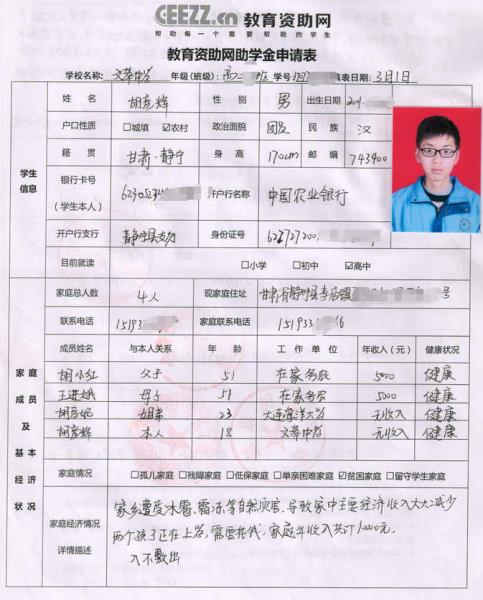 CEEZZ.cn 教育资助网
帮助每一个需要帮助的学生
教育资助网助学金申请表
学校名称: 文萃中学 年级(班级): 高二 班 学号 表日期: 3月1日
姓名 胡彦辉 性别 男 出生日期
户口性质 □城镇 ☑农村 政治面貌 团员 民族 汉
籍贯 甘肃·静宁 身高 170cm 邮编 743400
学生信息
银行卡号(学生本人) 开户行名称 中国农业银行
开户行支行 静宁县支行 身份证号 622727200
目前就读 □小学 □初中 ☑高中
家庭总人数 4人 现家庭住址 甘肃省静宁县李店镇 号
联系电话 15193 家庭联系电话 15193
家庭成员及基本经济状况
成员姓名 与本人关系 年龄 工作单位 年收入(元) 健康状况
胡小红 父子 51 在家务农 5000 健康
王进娥 母子 51 在家务农 5000 健康
胡彦妮 姐弟 23 大连海洋大学 无收入 健康
胡彦辉 本人 18 文萃中学 无收入 健康
家庭情况 □孤儿家庭 □残障家庭 □低保家庭 □单亲困难家庭 ☑贫困家庭 □留守学生家庭
家庭经济情况详情描述
家乡遭受冰雹、霜冻等自然灾害,导致家中主要经济收入大大减少
两个孩子正在上学,需要花钱,家庭年收入共计10000元,
入不敷出